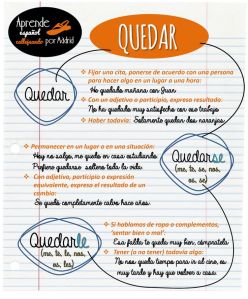 Aprende
español
callejeando
por Madrid
QUEDAR
Quedar
Fijar una cita, ponerse de acuerdo con una persona
para hacer algo en un lugar a una hora:
He quedado mañana con Juan
Con un adjetivo o participio, expresa resultado:
Me he quedado muy satisfecha con ese trabajo
Haber todavía: Solamente quedan dos naranjas.
Permanecer en un lugar o en una situación:
Hoy no salgo, me quedo en casa estudiando
Prefiero quedarse soltero toda la vida.
Con adjetivo, participio o expresión
equivalente, expresa el resultado de un
cambio:
Se quedó completamente calvo hace años.
Quedarse
(me, te, se, nos,
os, se)
Quedarle
(me, te, le, nos,
os, les)
Si hablamos de ropa o complementos,
"sentar bien o mal":
Esa falda te queda muy bien, cómpratela
Tener (o no tener) todavía algo:
No nos queda tiempo para ir al cine, es
muy tarde y hay que volver a casa.